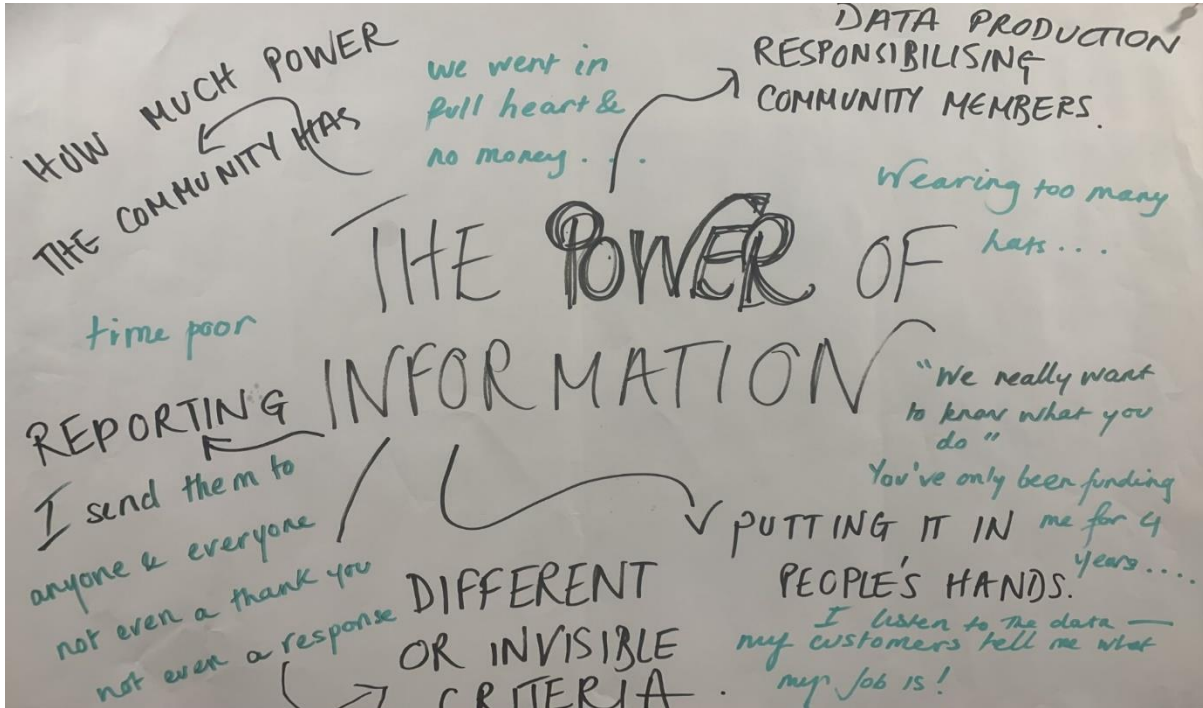 HOW MUCH POWER
THE COMMUNITY HAS
we went in
full heart &
no money . . .
DATA PRODUCTION
RESPONSIBILISING
COMMUNITY MEMBERS.
Wearing too many
hats . . .
THE POWER OF
INFORMATION
time poor
REPORTING
I send them to
anyone & everyone
not even a thank you
not even a response
DIFFERENT
OR INVISIBLE
CRITERIA.
"We really want
to know what you
do"
You've only been funding
me for 4
years....
PUTTING IT IN
PEOPLE'S HANDS.
I listen to the data —
my customers tell me what
my job is!